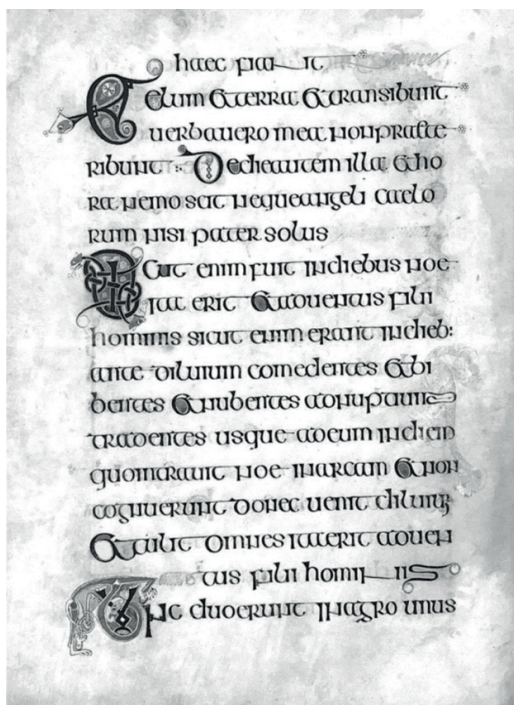 haec fiant
Celum & terra & transibunt
uerba uero mea non praete
ribunt : De die autem illa & ho
ra nemo scit neque angeli caelo
rum nisi pater solus
Sicut enim fuit in diebus noe
ita erit & aduentus filii
hominis sicut enim erant in dieb:
ante diluuium comedentes & bi
bentes & nubentes ad nuptum
tradentes usque ad eum in diem
quo intrauit noe in arcam & non
cognuerunt donec uenit diluuiu
& tulit omnes ita erit aduen
tus filii hominis
Tunc duo erunt in agro unus